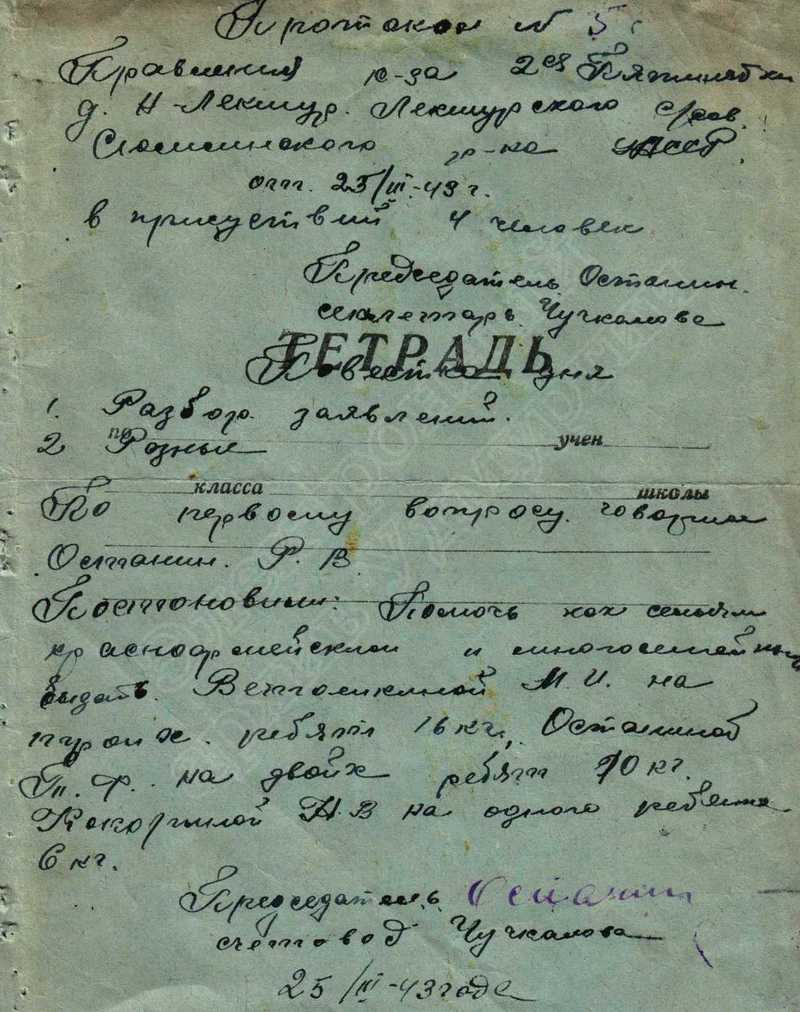 Протокол № 5
Правления к-за 2ая Пятилетки
д. Н-Лекшур. Лекшурского с/сов.
р-на АССР
от. 25/III-43 г.
в присуствий 4 человек
Председатель Останин.
секлетарь. Чучкалова
ТЕТРАДЬ
Повестка дня
1. Разбор. заявлений.
2 Разные
по учен
класса школы
По первому вопросу. говорил
Останин. Р. В.
Постоновили: Помочь как семьям
красноармейским и многосемейным
выдать. М. И. на
троих. ребят 16 кг., Останиной
Т. Ф. на двойх ребят 10 кг.
Кокориной Н. В на одного ребенка
6 кг.
Председатель. Останин
счетовод Чучкалова
25/III-43 года